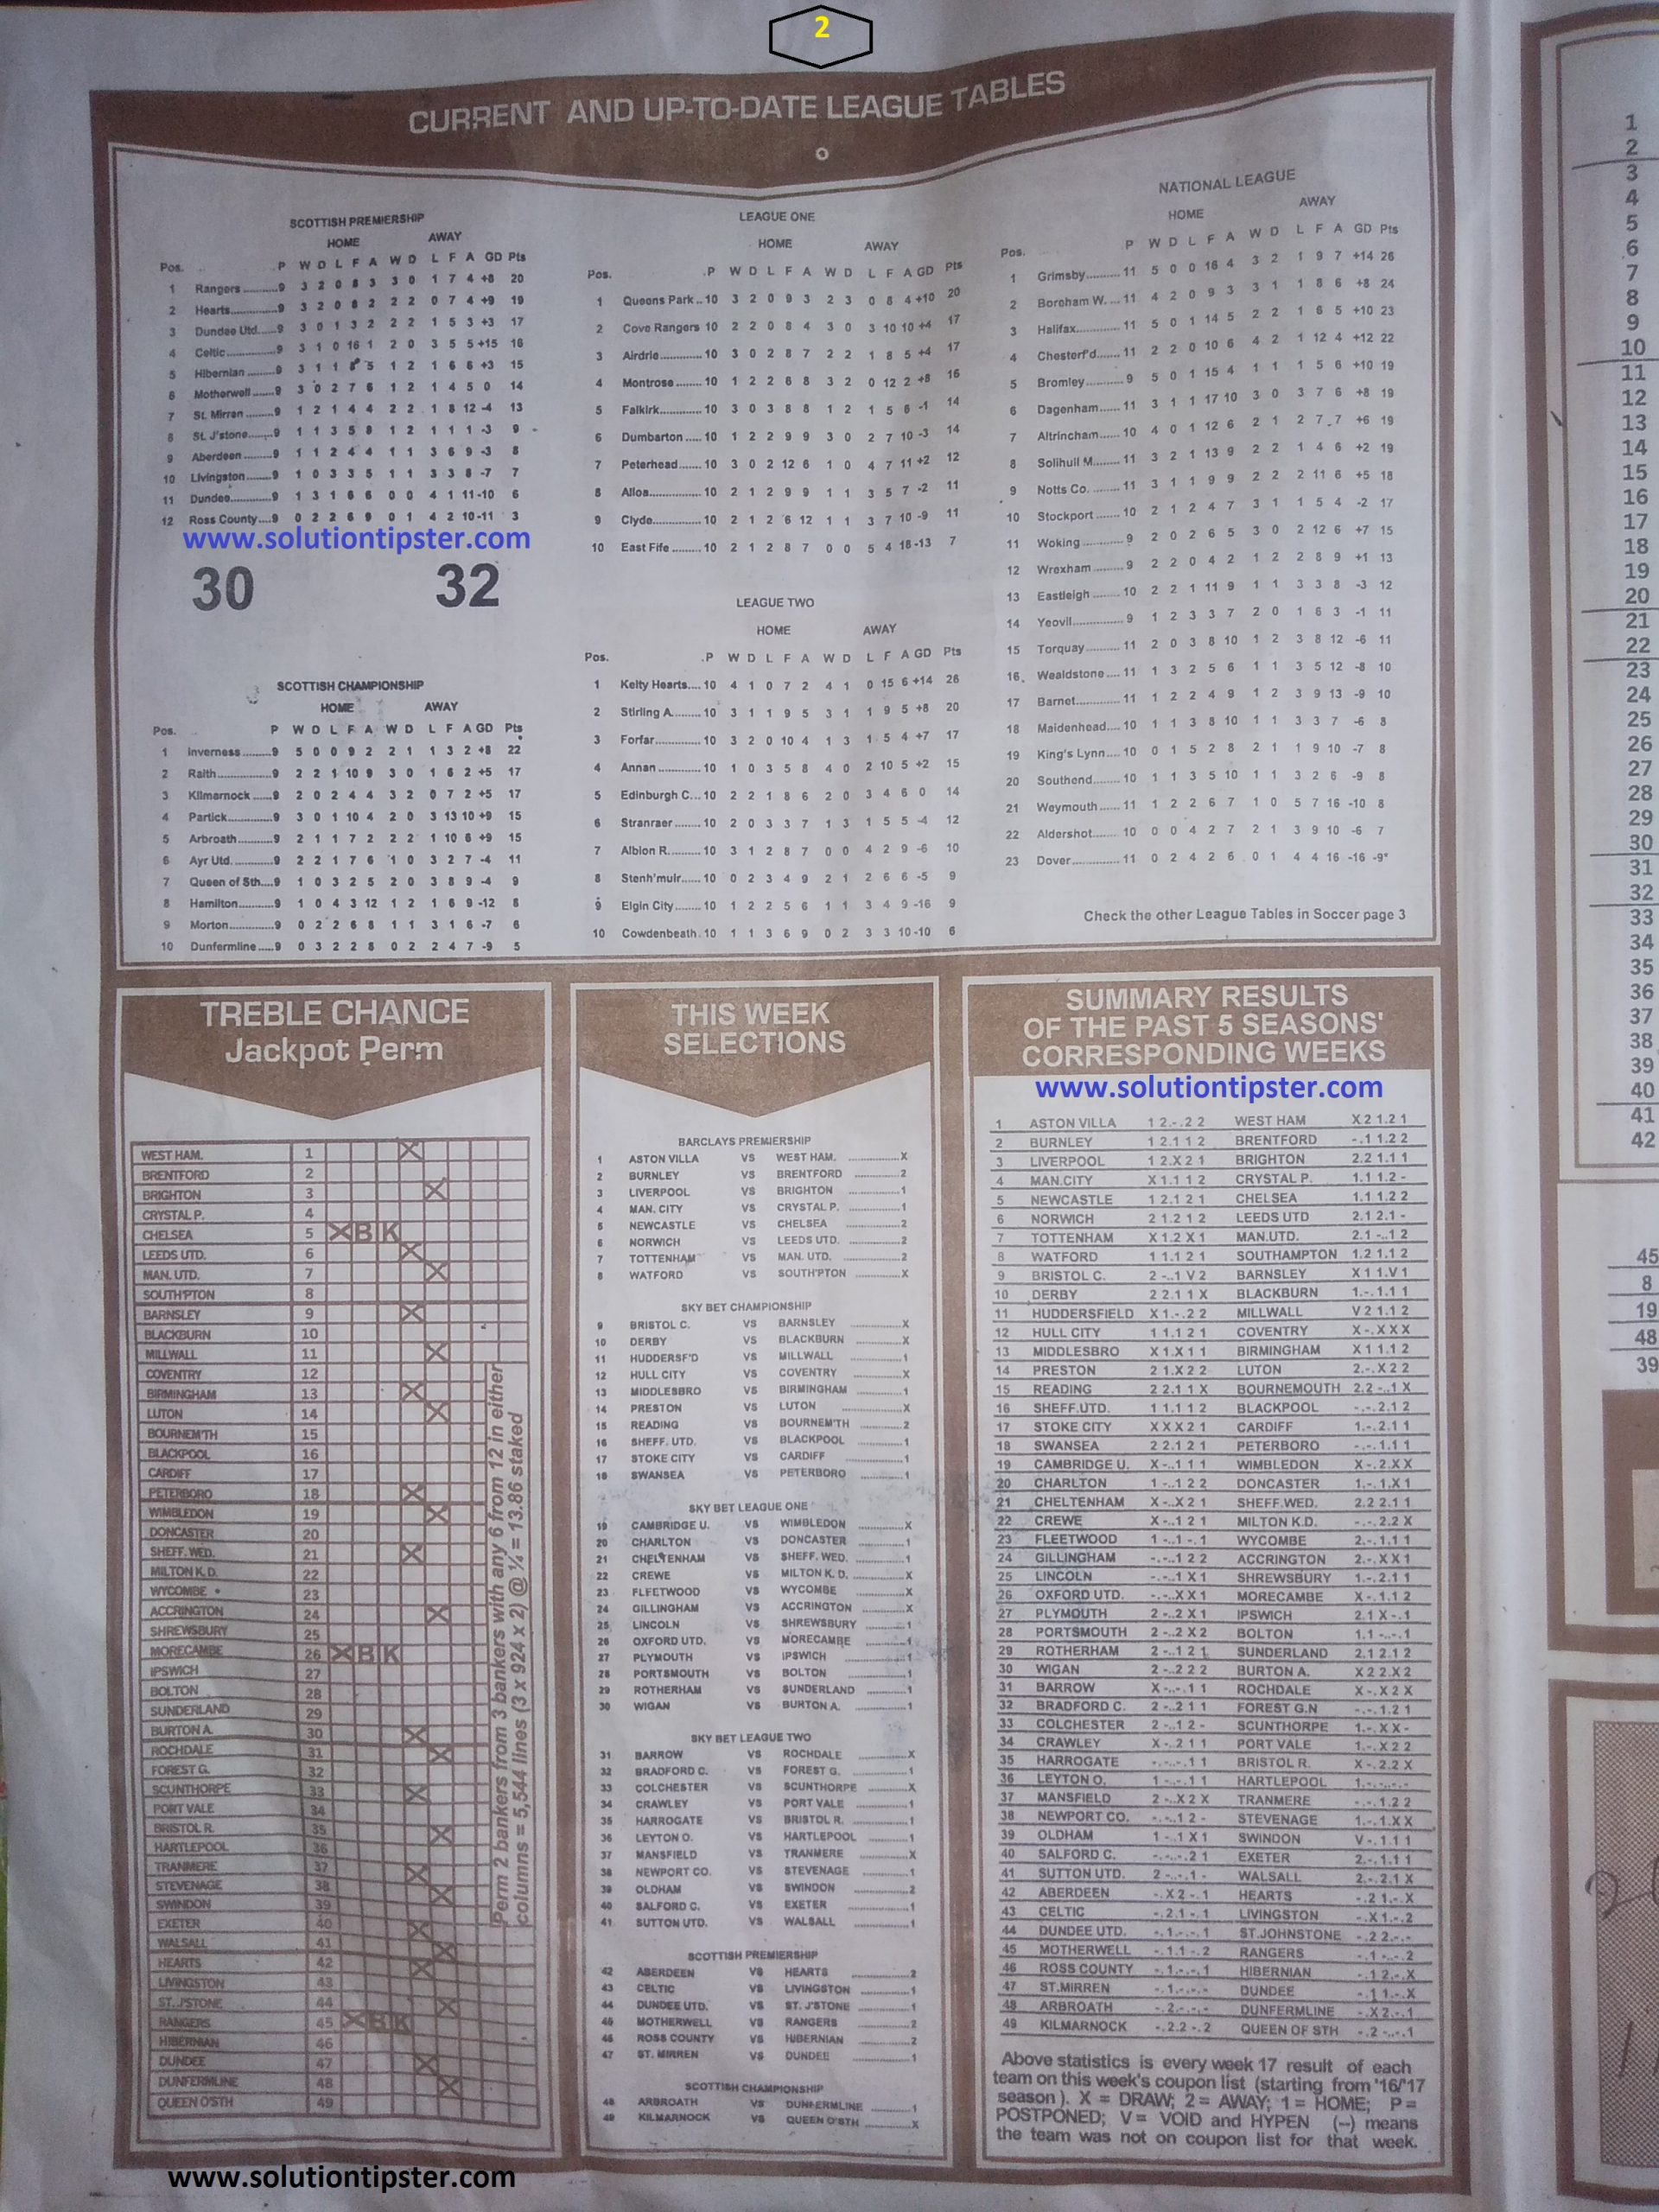 2
CURRENT AND UP-TO-DATE LEAGUE TABLES
SCOTTISH PREMIERSHIP
HOME AWAY
Pos. P W D L F A W D L F A GD Pts
1 Rangers 9 3 2 0 8 3 3 0 1 7 4 +8 20
2 Hearts 9 3 2 0 8 2 2 2 0 7 4 +9 19
3 Dundee Utd. 9 3 0 1 3 2 2 2 1 5 3 +3 17
4 Celtic 9 3 1 0 16 1 2 0 3 5 5 +15 16
5 Hibernian 9 3 1 1 8 5 1 2 1 6 6 +3 15
6 Motherwell 9 3 0 2 7 6 1 2 1 4 5 0 14
7 St. Mirren 9 1 2 1 4 4 2 2 1 8 12 -4 13
8 St. J'stone 9 1 1 3 5 8 1 2 1 1 1 -3 9
9 Aberdeen 9 1 1 2 4 4 1 1 3 6 9 -3 8
10 Livingston 9 1 0 3 3 5 1 1 3 3 8 -7 7
11 Dundee 9 1 3 1 6 6 0 0 4 1 11 -10 6
12 Ross County 9 0 2 2 6 9 0 1 4 2 10 -11 3
www.solutiontipster.com
30 32
SCOTTISH CHAMPIONSHIP
HOME AWAY
Pos. P W D L F A W D L F A GD Pts
1 Inverness 9 5 0 0 9 2 2 1 1 3 2 +8 22
2 Raith 9 2 2 1 10 9 3 0 1 6 2 +5 17
3 Kilmarnock 9 2 0 2 4 4 3 2 0 7 2 +5 17
4 Partick 9 3 0 1 10 4 2 0 3 13 10 +9 15
5 Arbroath 9 2 1 1 7 2 2 2 1 10 6 +9 15
6 Ayr Utd. 9 2 2 1 7 6 1 0 3 2 7 -4 11
7 Queen of Sth. 9 1 0 3 2 5 2 0 3 8 9 -4 9
8 Hamilton 9 1 0 4 3 12 1 2 1 6 9 -12 8
9 Morton 9 0 2 2 6 8 1 1 3 1 6 -7 6
10 Dunfermline 9 0 3 2 2 8 0 2 2 4 7 -9 5
LEAGUE ONE
HOME AWAY
Pos. P W D L F A W D L F A GD Pts
1 Queens Park 10 3 2 0 9 3 2 3 0 8 4 +10 20
2 Cove Rangers 10 2 2 0 8 4 3 0 3 10 10 +4 17
3 Airdrie 10 3 0 2 8 7 2 2 1 8 5 +4 17
4 Montrose 10 1 2 2 6 8 3 2 0 12 2 +8 16
5 Falkirk 10 3 0 3 8 8 1 2 1 5 6 -1 14
6 Dumbarton 10 1 2 2 9 9 3 0 2 7 10 -3 14
7 Peterhead 10 3 0 2 12 6 1 0 4 7 11 +2 12
8 Alloa 10 2 1 2 9 9 1 1 3 5 7 -2 11
9 Clyde 10 2 1 2 6 12 1 1 3 7 10 -9 11
10 East Fife 10 2 1 2 8 7 0 0 5 4 18 -13 7
LEAGUE TWO
HOME AWAY
Pos. P W D L F A W D L F A GD Pts
1 Kelty Hearts 10 4 1 0 7 2 4 1 0 15 6 +14 26
2 Stirling A. 10 3 1 1 9 5 3 1 1 9 5 +8 20
3 Forfar 10 3 2 0 10 4 1 3 1 5 4 +7 17
4 Annan 10 1 0 3 5 8 4 0 2 10 5 +2 15
5 Edinburgh C. 10 2 2 1 8 6 2 0 3 4 6 0 14
6 Stranraer 10 2 0 3 3 7 1 3 1 5 5 -4 12
7 Albion R. 10 3 1 2 8 7 0 0 4 2 9 -6 10
8 Stenh'muir 10 0 2 3 4 9 2 1 2 6 6 -5 9
9 Elgin City 10 1 2 2 5 6 1 1 3 4 9 -16 9
10 Cowdenbeath 10 1 1 3 6 9 0 2 3 3 10 -10 6
NATIONAL LEAGUE
HOME AWAY
Pos. P W D L F A W D L F A GD Pts
1 Grimsby 11 5 0 0 16 4 3 2 1 9 7 +14 26
2 Boreham W. 11 4 2 0 9 3 3 1 1 8 6 +8 24
3 Halifax 11 5 0 1 14 5 2 2 1 6 5 +10 23
4 Chesterf'd 11 2 2 0 10 6 4 2 1 12 4 +12 22
5 Bromley 9 5 0 1 15 4 1 1 1 5 6 +10 19
6 Dagenham 11 3 1 1 17 10 3 0 3 7 6 +8 19
7 Altrincham 10 4 0 1 12 6 2 1 2 7 7 +6 19
8 Solihull M. 11 3 2 1 13 9 2 2 1 4 6 +2 19
9 Notts Co. 11 3 1 1 9 9 2 2 2 11 6 +5 18
10 Stockport 10 2 1 2 4 7 3 1 1 5 4 -2 17
11 Woking 9 2 0 2 6 5 3 0 2 12 6 +7 15
12 Wrexham 9 2 2 0 4 2 1 2 2 8 9 +1 13
13 Eastleigh 10 2 2 1 11 9 1 1 3 3 8 -3 12
14 Yeovil 9 1 2 3 3 7 2 0 1 6 3 -1 11
15 Torquay 11 2 0 3 8 10 1 2 3 8 12 -6 11
16 Wealdstone 11 1 3 2 5 6 1 1 3 5 12 -8 10
17 Barnet 11 1 2 2 4 9 1 2 3 9 13 -9 10
18 Maidenhead 10 1 1 3 8 10 1 1 3 3 7 -6 8
19 King's Lynn 10 0 1 5 2 8 2 1 1 9 10 -7 8
20 Southend 10 1 1 3 5 10 1 1 3 2 6 -9 8
21 Weymouth 11 1 2 2 6 7 1 0 5 7 16 -10 8
22 Aldershot 10 0 0 4 2 7 2 1 3 9 10 -6 7
23 Dover 11 0 2 4 2 6 0 1 4 4 16 -16 -9*
Check the other League Tables in Soccer page 3
TREBLE CHANCE
Jackpot Perm
WEST HAM. 1 X
BRENTFORD 2
BRIGHTON 3 X
CRYSTAL P. 4
CHELSEA 5 X B K
LEEDS UTD. 6 X
MAN. UTD. 7 X
SOUTH'PTON 8
BARNSLEY 9 X
BLACKBURN 10
MILLWALL 11 X
COVENTRY 12
BIRMINGHAM 13 X
LUTON 14 X
BOURNEM'TH 15
BLACKPOOL 16
CARDIFF 17
PETERBORO 18 X
WIMBLEDON 19 X
DONCASTER 20
SHEFF. WED. 21 X
MILTON K.D. 22
WYCOMBE 23
ACCRINGTON 24 X
SHREWSBURY 25
MORECAMBE 26 X B K
IPSWICH 27
BOLTON 28
SUNDERLAND 29
BURTON A. 30 X
ROCHDALE 31 X
FOREST G. 32
SCUNTHORPE 33 X
PORT VALE 34
BRISTOL R. 35 X
HARTLEPOOL 36
TRANMERE 37 X
STEVENAGE 38 X
SWINDON 39
EXETER 40 X
WALSALL 41 X
HEARTS 42 X
LIVINGSTON 43
ST. J'STONE 44 X
RANGERS 45 X B K
HIBERNIAN 46
DUNDEE 47 X
DUNFERMLINE 48 X
QUEEN O'STH 49
Perm 2 bankers from 3 bankers with any 6 from 12 in either
columns = 5,544 lines (3 x 924 x 2) @ ¼ = 13.86 staked
THIS WEEK
SELECTIONS
BARCLAYS PREMIERSHIP
1 ASTON VILLA VS WEST HAM. X
2 BURNLEY VS BRENTFORD 2
3 LIVERPOOL VS BRIGHTON 1
4 MAN. CITY VS CRYSTAL P. 1
5 NEWCASTLE VS CHELSEA 2
6 NORWICH VS LEEDS UTD. 2
7 TOTTENHAM VS MAN. UTD. 2
8 WATFORD VS SOUTH'PTON X
SKY BET CHAMPIONSHIP
9 BRISTOL C. VS BARNSLEY X
10 DERBY VS BLACKBURN X
11 HUDDERSF'D VS MILLWALL 1
12 HULL CITY VS COVENTRY X
13 MIDDLESBRO VS BIRMINGHAM 1
14 PRESTON VS LUTON X
15 READING VS BOURNEM'TH 2
16 SHEFF. UTD. VS BLACKPOOL 1
17 STOKE CITY VS CARDIFF 1
18 SWANSEA VS PETERBORO 1
SKY BET LEAGUE ONE
19 CAMBRIDGE U. VS WIMBLEDON X
20 CHARLTON VS DONCASTER 1
21 CHELTENHAM VS SHEFF. WED. 1
22 CREWE VS MILTON K. D. X
23 FLEETWOOD VS WYCOMBE X
24 GILLINGHAM VS ACCRINGTON X
25 LINCOLN VS SHREWSBURY 1
26 OXFORD UTD. VS MORECAMBE 1
27 PLYMOUTH VS IPSWICH 1
28 PORTSMOUTH VS BOLTON 1
29 ROTHERHAM VS SUNDERLAND 1
30 WIGAN VS BURTON A. 1
SKY BET LEAGUE TWO
31 BARROW VS ROCHDALE X
32 BRADFORD C. VS FOREST G. 1
33 COLCHESTER VS SCUNTHORPE X
34 CRAWLEY VS PORT VALE 1
35 HARROGATE VS BRISTOL R. 1
36 LEYTON O. VS HARTLEPOOL 1
37 MANSFIELD VS TRANMERE X
38 NEWPORT CO. VS STEVENAGE 1
39 OLDHAM VS SWINDON 2
40 SALFORD C. VS EXETER 1
41 SUTTON UTD. VS WALSALL 1
SCOTTISH PREMIERSHIP
42 ABERDEEN VS HEARTS 2
43 CELTIC VS LIVINGSTON 1
44 DUNDEE UTD. VS ST. J'STONE 1
45 MOTHERWELL VS RANGERS 2
46 ROSS COUNTY VS HIBERNIAN 2
47 ST. MIRREN VS DUNDEE 1
SCOTTISH CHAMPIONSHIP
48 ARBROATH VS DUNFERMLINE 1
49 KILMARNOCK VS QUEEN O'STH X
SUMMARY RESULTS
OF THE PAST 5 SEASONS'
CORRESPONDING WEEKS
www.solutiontipster.com
1 ASTON VILLA 1 2.-.2 2 WEST HAM X 2 1.2 1
2 BURNLEY 1 2.1 1 2 BRENTFORD -.1 1.2 2
3 LIVERPOOL 1 2.X 2 1 BRIGHTON 2.2 1.1 1
4 MAN.CITY X 1.1 1 2 CRYSTAL P. 1.1 1.2 -
5 NEWCASTLE 1 2.1 2 1 CHELSEA 1.1 1.2 2
6 NORWICH 2 1.2 1 2 LEEDS UTD 2.1 2.1 -
7 TOTTENHAM X 1.2 X 1 MAN.UTD. 2.1 -..1 2
8 WATFORD 1 1.1 2 1 SOUTHAMPTON 1.2 1.1 2
9 BRISTOL C. 2 -..1 V 2 BARNSLEY X 1 1.V 1
10 DERBY 2 2.1 1 X BLACKBURN 1.-.1.1 1
11 HUDDERSFIELD X 1.-.2 2 MILLWALL V 2 1.1 2
12 HULL CITY 1 1.1 2 1 COVENTRY X -.X X X
13 MIDDLESBRO X 1.X 1 1 BIRMINGHAM X 1 1.1 2
14 PRESTON 2 1.X 2 2 LUTON 2.-.X 2 2
15 READING 2 2.1 1 X BOURNEMOUTH 2.2 -..1 X
16 SHEFF.UTD. 1 1.1 1 2 BLACKPOOL -.-.2.1 2
17 STOKE CITY X X X 2 1 CARDIFF 1.-.2.1 1
18 SWANSEA 2 2.1 2 1 PETERBORO -.-.1.1 1
19 CAMBRIDGE U. X -..1 1 1 WIMBLEDON X -.2.X X
20 CHARLTON 1 -..1 2 2 DONCASTER 1.-.1.X 1
21 CHELTENHAM X -..X 2 1 SHEFF.WED. 2.2 2.1 1
22 CREWE X -..1 2 1 MILTON K.D. -.-.2.2 X
23 FLEETWOOD 1 -..1 -.1 WYCOMBE 2.-.1.1 1
24 GILLINGHAM -.-..1 2 2 ACCRINGTON 2.-.X X 1
25 LINCOLN -.-..1 X 1 SHREWSBURY 1.-.2.1 1
26 OXFORD UTD. -.-.X X 1 MORECAMBE X -.1.1 2
27 PLYMOUTH 2 -..2 X 1 IPSWICH 2.1 X -.1
28 PORTSMOUTH 2 -..2 X 2 BOLTON 1.1 -..-.1
29 ROTHERHAM 2 -..1 2 1 SUNDERLAND 2.1 2.1 2
30 WIGAN 2 -..2 2 2 BURTON A. X 2 2.X 2
31 BARROW X -.-..1 1 ROCHDALE X -.X 2 X
32 BRADFORD C. 2 -..2 1 1 FOREST G.N -.-.1.2 1
33 COLCHESTER 2 -..1 2 - SCUNTHORPE 1.-.X X -
34 CRAWLEY X -..2 1 1 PORT VALE 1.-.X 2 2
35 HARROGATE -.-.-..1 1 BRISTOL R. X -.2.2 X
36 LEYTON O. 1 -..-.1 1 HARTLEPOOL 1.-.-.-.-
37 MANSFIELD 2 -..X 2 X TRANMERE -.-.1.2 2
38 NEWPORT CO. -.-..1 2 - STEVENAGE 1.-.1.X X
39 OLDHAM 1 -..1 X 1 SWINDON V -.1.1 1
40 SALFORD C. -.-.-..2 1 EXETER 2.-.1.1 1
41 SUTTON UTD. 2 -.-..1 - WALSALL 2.-.2.1 X
42 ABERDEEN -.X 2 -.1 HEARTS -.2 1.-.X
43 CELTIC -.2.1 -.1 LIVINGSTON -.X 1.-.2
44 DUNDEE UTD. -.1.-.-.1 ST.JOHNSTONE -.2 2.-.-
45 MOTHERWELL -.1.1 -.2 RANGERS -.1 -..-.2
46 ROSS COUNTY -.1.-.-.1 HIBERNIAN -.1 2.-.X
47 ST.MIRREN -.1.-.-.- DUNDEE -.1 1.-.X
48 ARBROATH -.2.-.-.- DUNFERMLINE -.X 2.-.1
49 KILMARNOCK -.2.2 -.2 QUEEN OF STH -.2 -..-.1
Above statistics is every week 17 result of each
team on this week's coupon list (starting from '16/'17
season ). X = DRAW; 2 = AWAY; 1 = HOME; P =
POSTPONED; V = VOID and HYPEN (--) means
the team was not on coupon list for that week.
www.solutiontipster.com
1
2
3
4
5
6
7
8
9
10
11
12
13
14
15
16
17
18
19
20
21
22
23
24
25
26
27
28
29
30
31
32
33
34
35
36
37
38
39
40
41
42
45
8
19
48
39